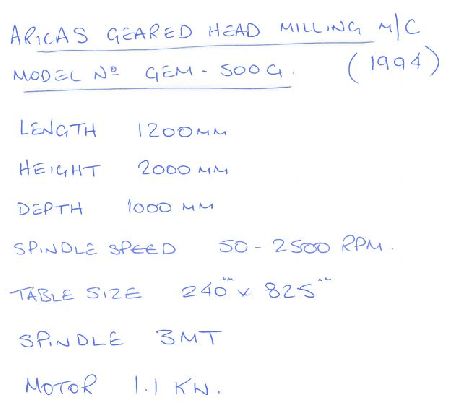 ARICAS GEARED HEAD MILLING M/C
MODEL Nº GEM-500G. (1994)
LENGTH 1200MM
HEIGHT 2000MM
DEPTH 1000 MM
SPINDLE SPEED 50-2500 RPM.
TABLE SIZE 240mm x 825mm
SPINDLE 3MT
MOTOR 1.1 KW.